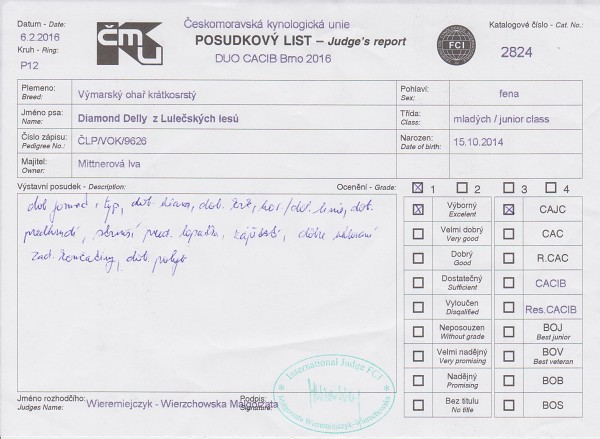 Datum - Date:
6.2.2016
Kruh - Ring:
P12
ČMKU
Českomoravská kynologická unie
POSUDKOVÝ LIST – Judge's report
DUO CACIB Brno 2016
FCI
Katalogové číslo - Cat. No.:
2824
Plemeno:
Breed:
Výmarský ohař krátkosrstý
Pohlaví:
Sex:
fena
Jméno psa:
Name:
Diamond Delly z Lulečských lesů
Třída:
Class:
mladých / junior class
Číslo zápisu:
Pedigree No.:
ČLP/VOK/9626
Narozen:
Date of birth:
15.10.2014
Majitel:
Owner:
Mittnerová Iva
Výstavní posudek - Description:
Ocenění - Grade:
1 2 3 4
dob typ, dob. hlava, dob. dob.
předhrudí, lopatka, dobře
zad. končetiny, dob. pohyb
Výborný
Excelent
CAJC
Velmi dobrý
Very good
CAC
Dobrý
Good
R.CAC
Dostatečný
Sufficient
CACIB
Vyloučen
Disqalified
Res.CACIB
Neposouzen
Without grade
BOJ
Best junior
Velmi nadějný
Very promising
BOV
Best veteran
Nadějný
Promising
BOB
Bez titulu
No title
BOS
International Judge FCI
Małgorzata Wieremiejczyk-Wierzchowska
Jméno rozhodčího:
Judges Name:
Wieremiejczyk - Wierzchowska Malgorzata
Podpis:
Signature: